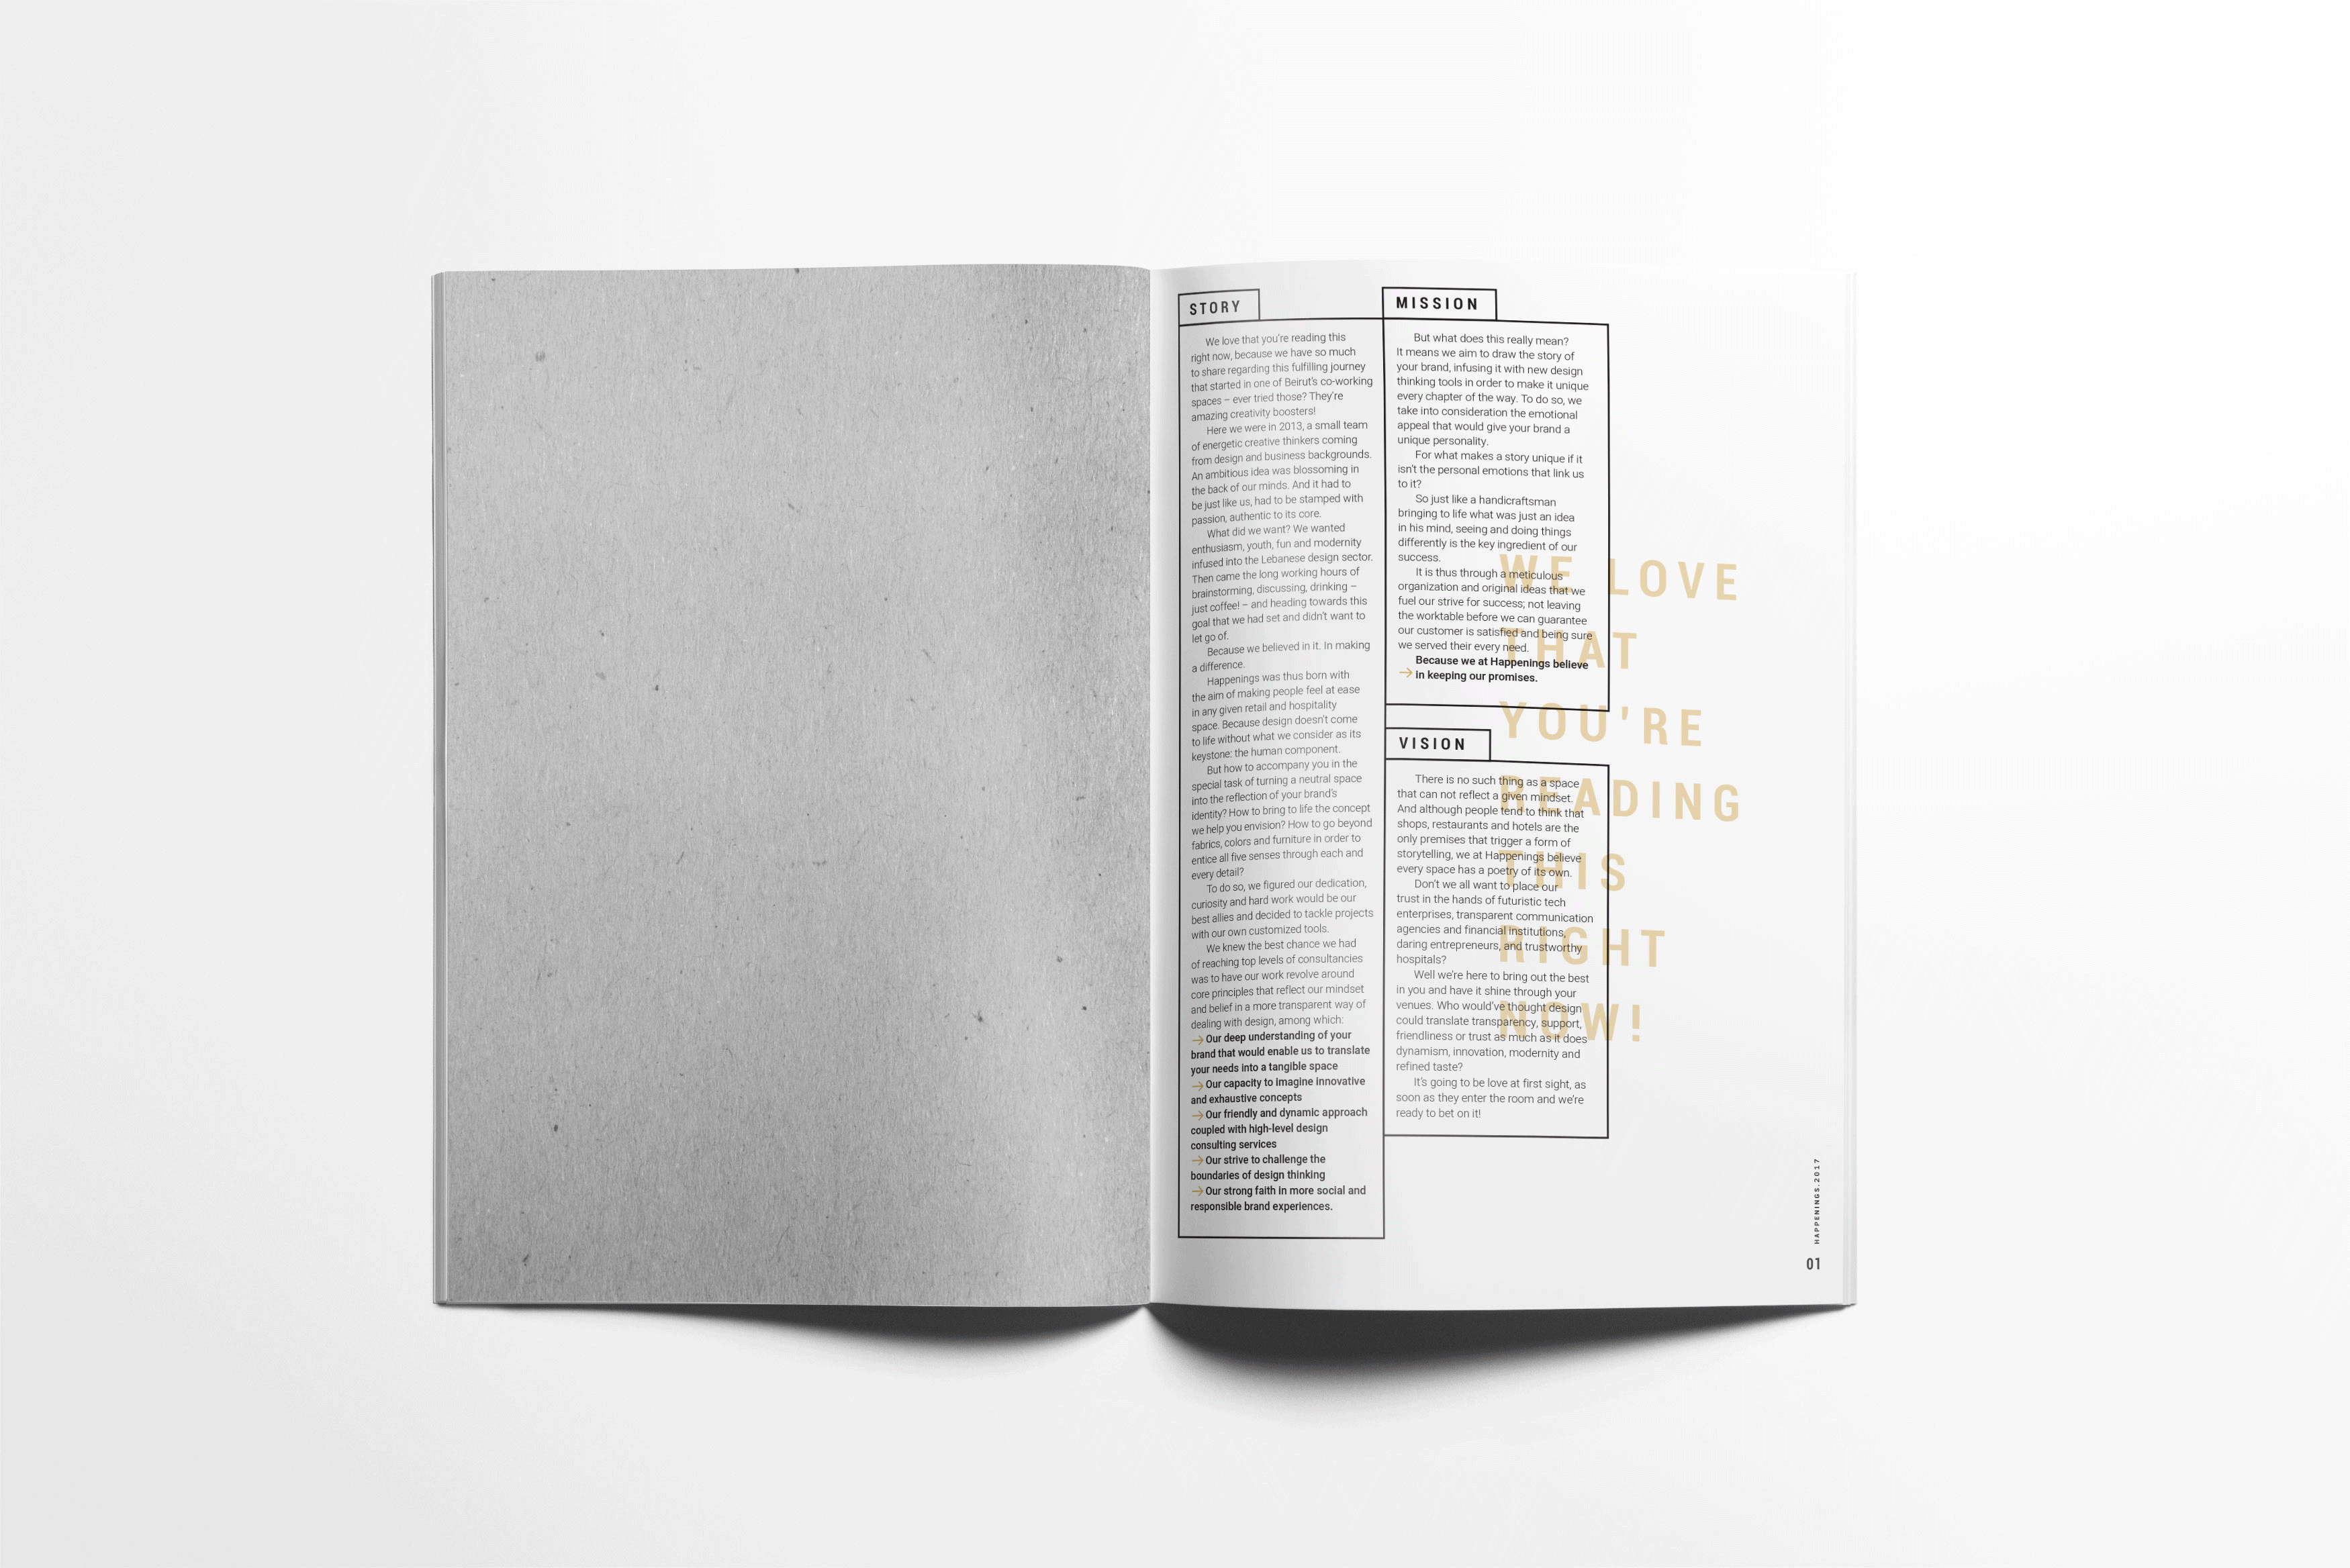 STORY
We love that you're reading this
right now, because we have so much
to share regarding this fulfilling journey
that started in one of Beirut's co-working
spaces – ever tried those? They're
amazing creativity boosters!
Here we were in 2013, a small team
of energetic creative thinkers coming
from design and business backgrounds.
An ambitious idea was blossoming in
the back of our minds. And it had to
be just like us, had to be stamped with
passion, authentic to its core.
What did we want? We wanted
enthusiasm, youth, fun and modernity
infused into the Lebanese design sector.
Then came the long working hours of
brainstorming, discussing, drinking –
just coffee! – and heading towards this
goal that we had set and didn't want to
let go of.
Because we believed in it. In making
a difference.
Happenings was thus born with
the aim of making people feel at ease
in any given retail and hospitality
space. Because design doesn't come
to life without what we consider as its
keystone: the human component.
But how to accompany you in the
special task of turning a neutral space
into the reflection of your brand's
identity? How to bring to life the concept
we help you envision? How to go beyond
fabrics, colors and furniture in order to
entice all five senses through each and
every detail?
To do so, we figured our dedication,
curiosity and hard work would be our
best allies and decided to tackle projects
with our own customized tools.
We knew the best chance we had
of reaching top levels of consultancies
was to have our work revolve around
core principles that reflect our mindset
and belief in a more transparent way of
dealing with design, among which:
→ Our deep understanding of your
brand that would enable us to translate
your needs into a tangible space
→ Our capacity to imagine innovative
and exhaustive concepts
→ Our friendly and dynamic approach
coupled with high-level design
consulting services
→ Our strive to challenge the
boundaries of design thinking
→ Our strong faith in more social and
responsible brand experiences.
MISSION
But what does this really mean?
It means we aim to draw the story of
your brand, infusing it with new design
thinking tools in order to make it unique
every chapter of the way. To do so, we
take into consideration the emotional
appeal that would give your brand a
unique personality.
For what makes a story unique if it
isn't the personal emotions that link us
to it?
So just like a handicraftsman
bringing to life what was just an idea
in his mind, seeing and doing things
differently is the key ingredient of our
success.
It is thus through a meticulous
organization and original ideas that we
fuel our strive for success; not leaving
the worktable before we can guarantee
our customer is satisfied and being sure
we served their every need.
Because we at Happenings believe
→ in keeping our promises.
VISION
There is no such thing as a space
that can not reflect a given mindset.
And although people tend to think that
shops, restaurants and hotels are the
only premises that trigger a form of
storytelling, we at Happenings believe
every space has a poetry of its own.
Don't we all want to place our
trust in the hands of futuristic tech
enterprises, transparent communication
agencies and financial institutions,
daring entrepreneurs, and trustworthy
hospitals?
Well we're here to bring out the best
in you and have it shine through your
venues. Who would've thought design
could translate transparency, support,
friendliness or trust as much as it does
dynamism, innovation, modernity and
refined taste?
It's going to be love at first sight, as
soon as they enter the room and we're
ready to bet on it!
WE LOVE
THAT
YOU'RE
READING
THIS
RIGHT
NOW!
HAPPENINGS.2017
01